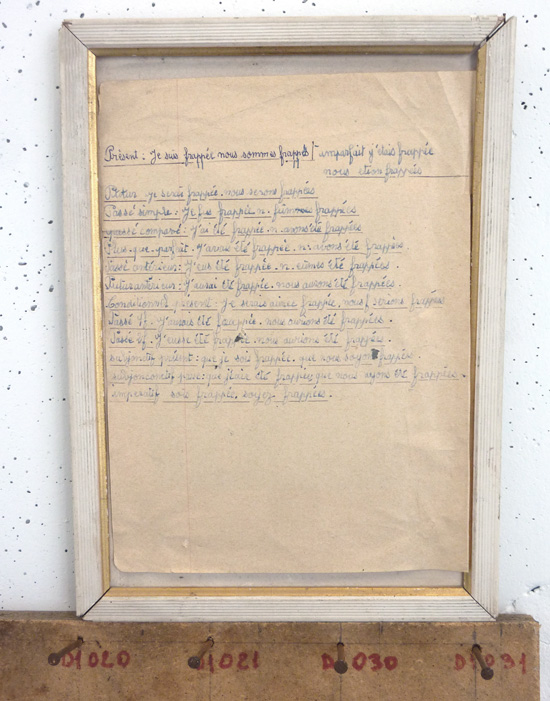 Présent : Je suis frappée nous sommes frappés / imparfait j'étais frappée
nous etions frappées
Futur je serai frappée. nous serons frappées
Passé simple : Je fus frappée. n. fûmes frappées
passé composé : J'ai été frappée. n. avons été frappées
Plus-que-parfait. J'avais été frappée. n. avions été frappées
Passé antérieur : J'eus été frappée. n. eûmes été frappées.
Futur antérieur : J'aurai été frappée. nous aurons été frappées.
Conditionnel présent : Je serais frappée, nous serions frappées
Passé 1f. J'aurais été frappée. nous aurions été frappées.
Passé 2f. J'eusse été frappée. nous été frappées.
subjonctif présent : que je sois frappée. que nous soyons frappées.
subjonctif passé : que j'aie été frappée, que nous ayons été frappées.
imperatif sois frappée. soyez frappées.
D1020 D1021 D1030 D1031